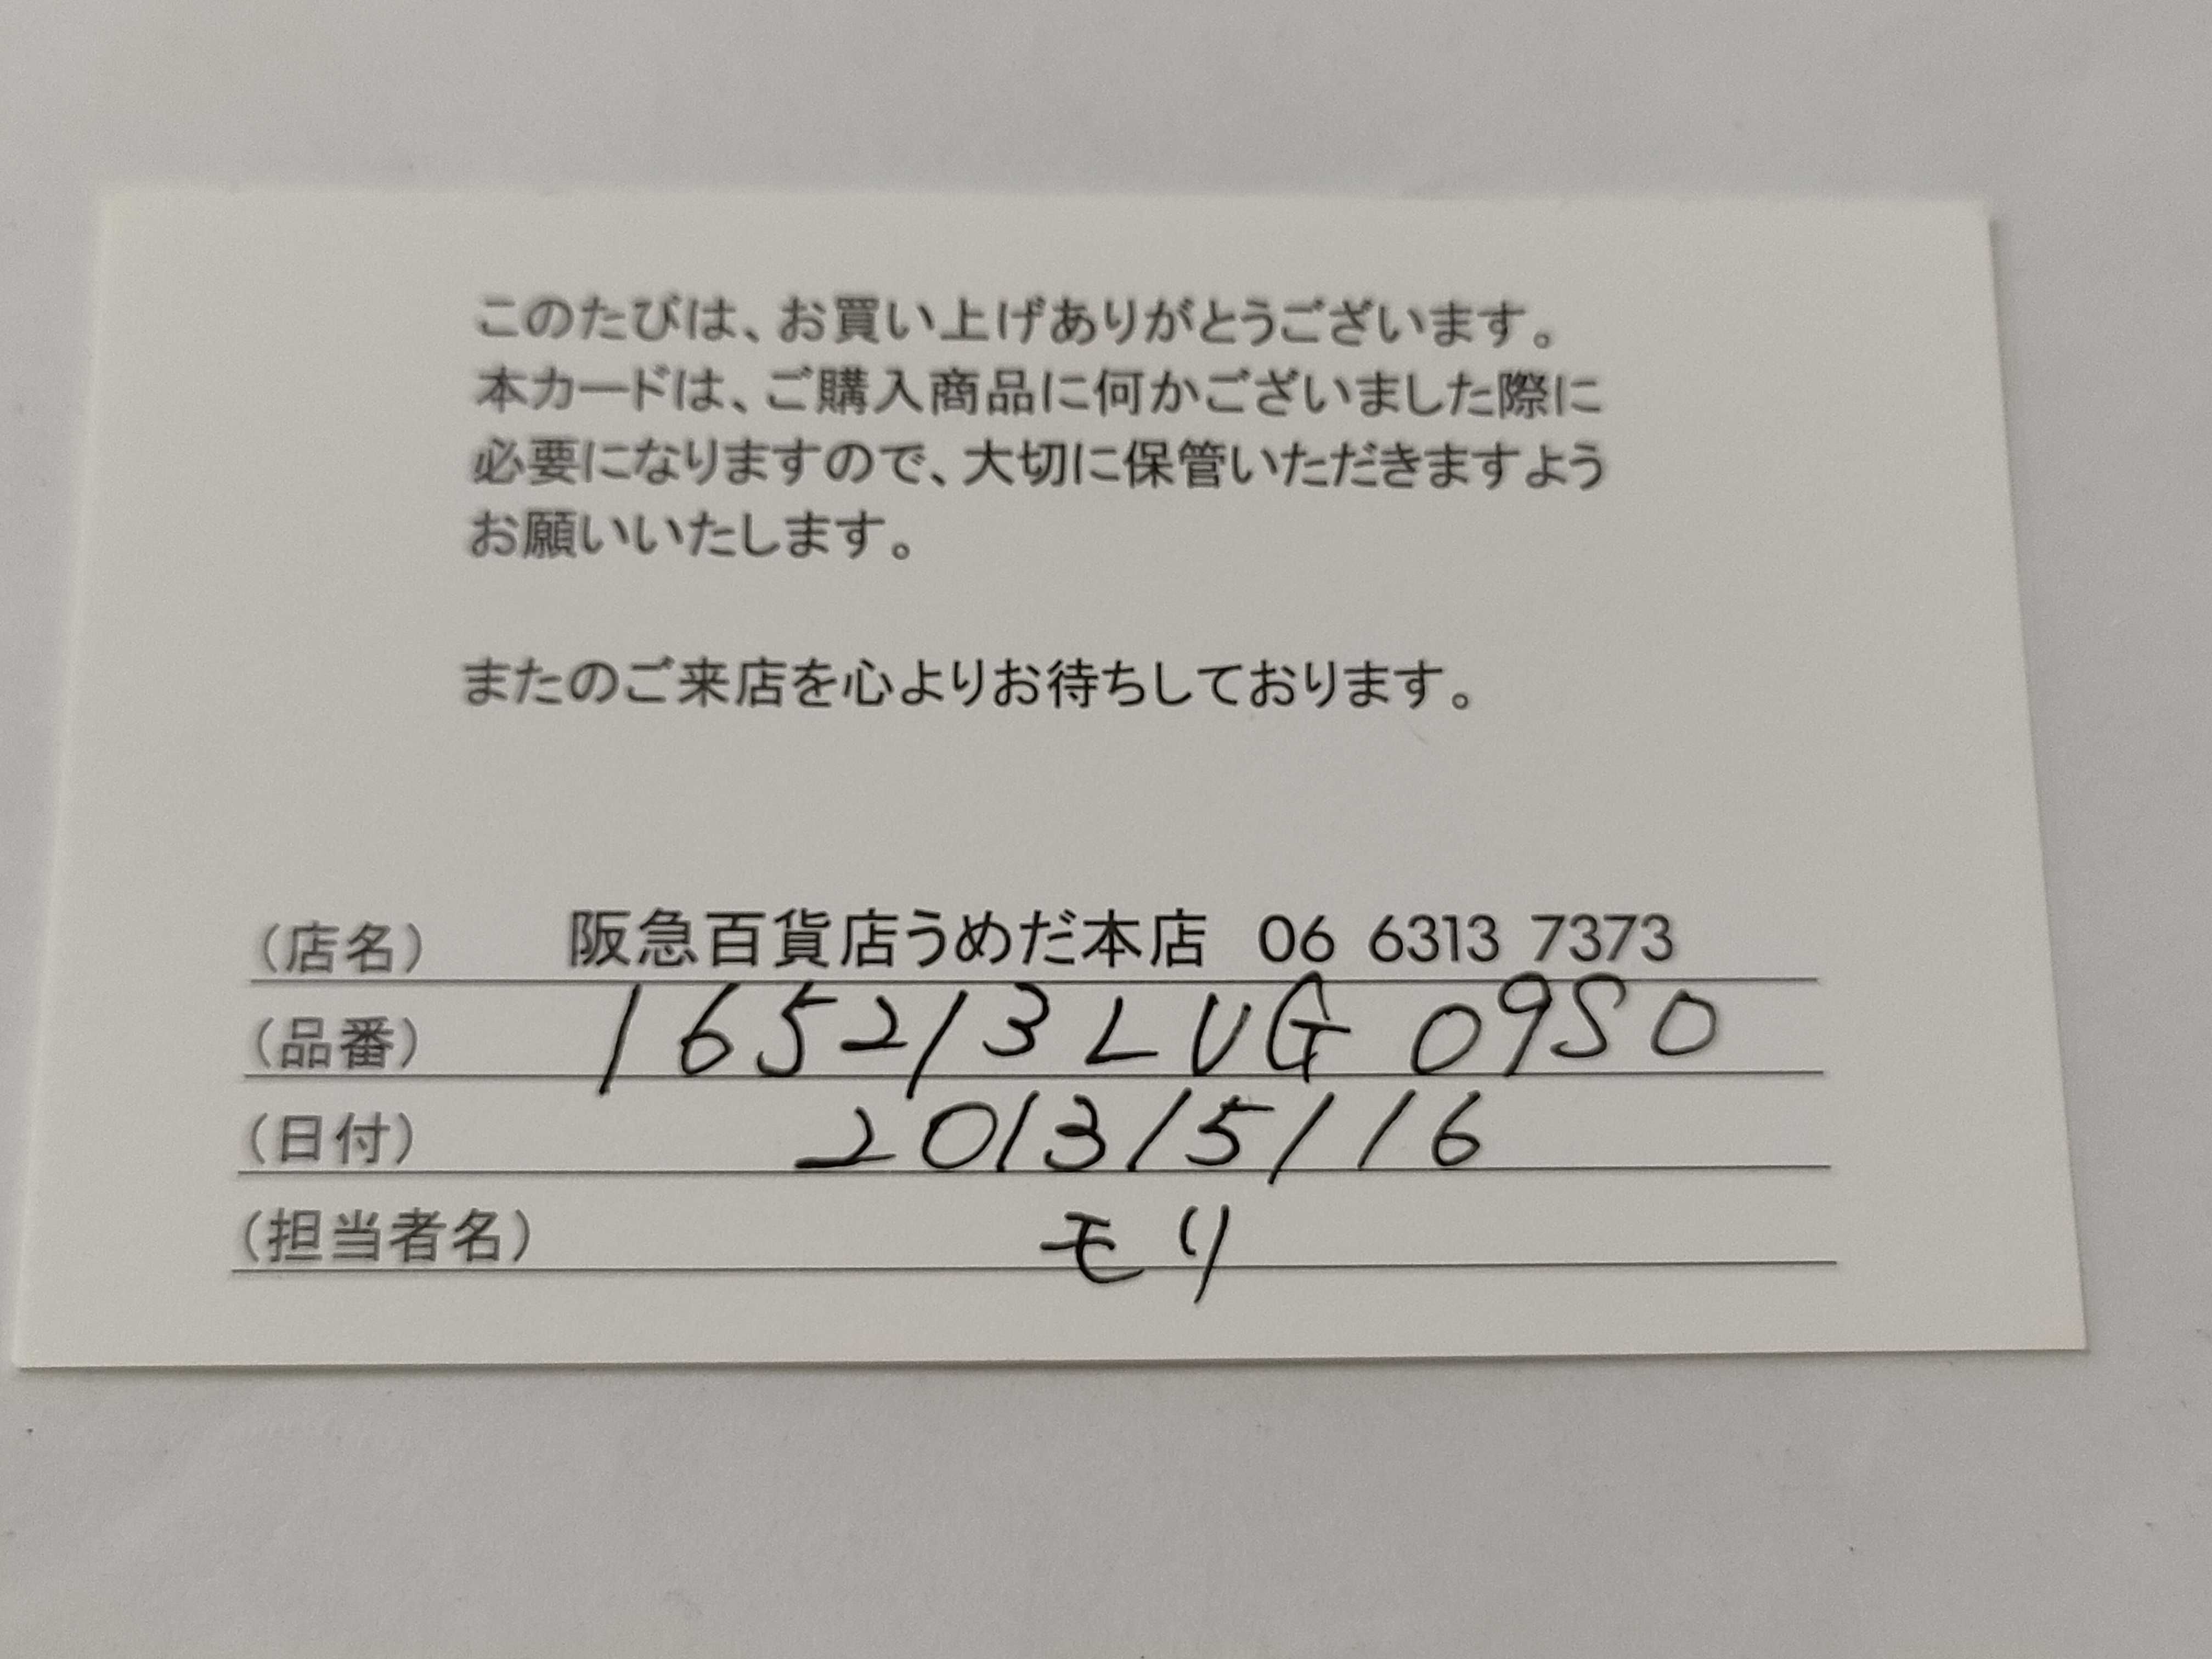 このたびは、お買い上げありがとうございます。
本カードは、ご購入商品に何かございました際に
必要になりますので、大切に保管いただきますよう
お願いいたします。
またのご来店を心よりお待ちしております。
（店名） 阪急百貨店うめだ本店 06 6313 7373
（品番） 165213 LVG 09SO
（日付） 2013/5/16
（担当者名） モリ